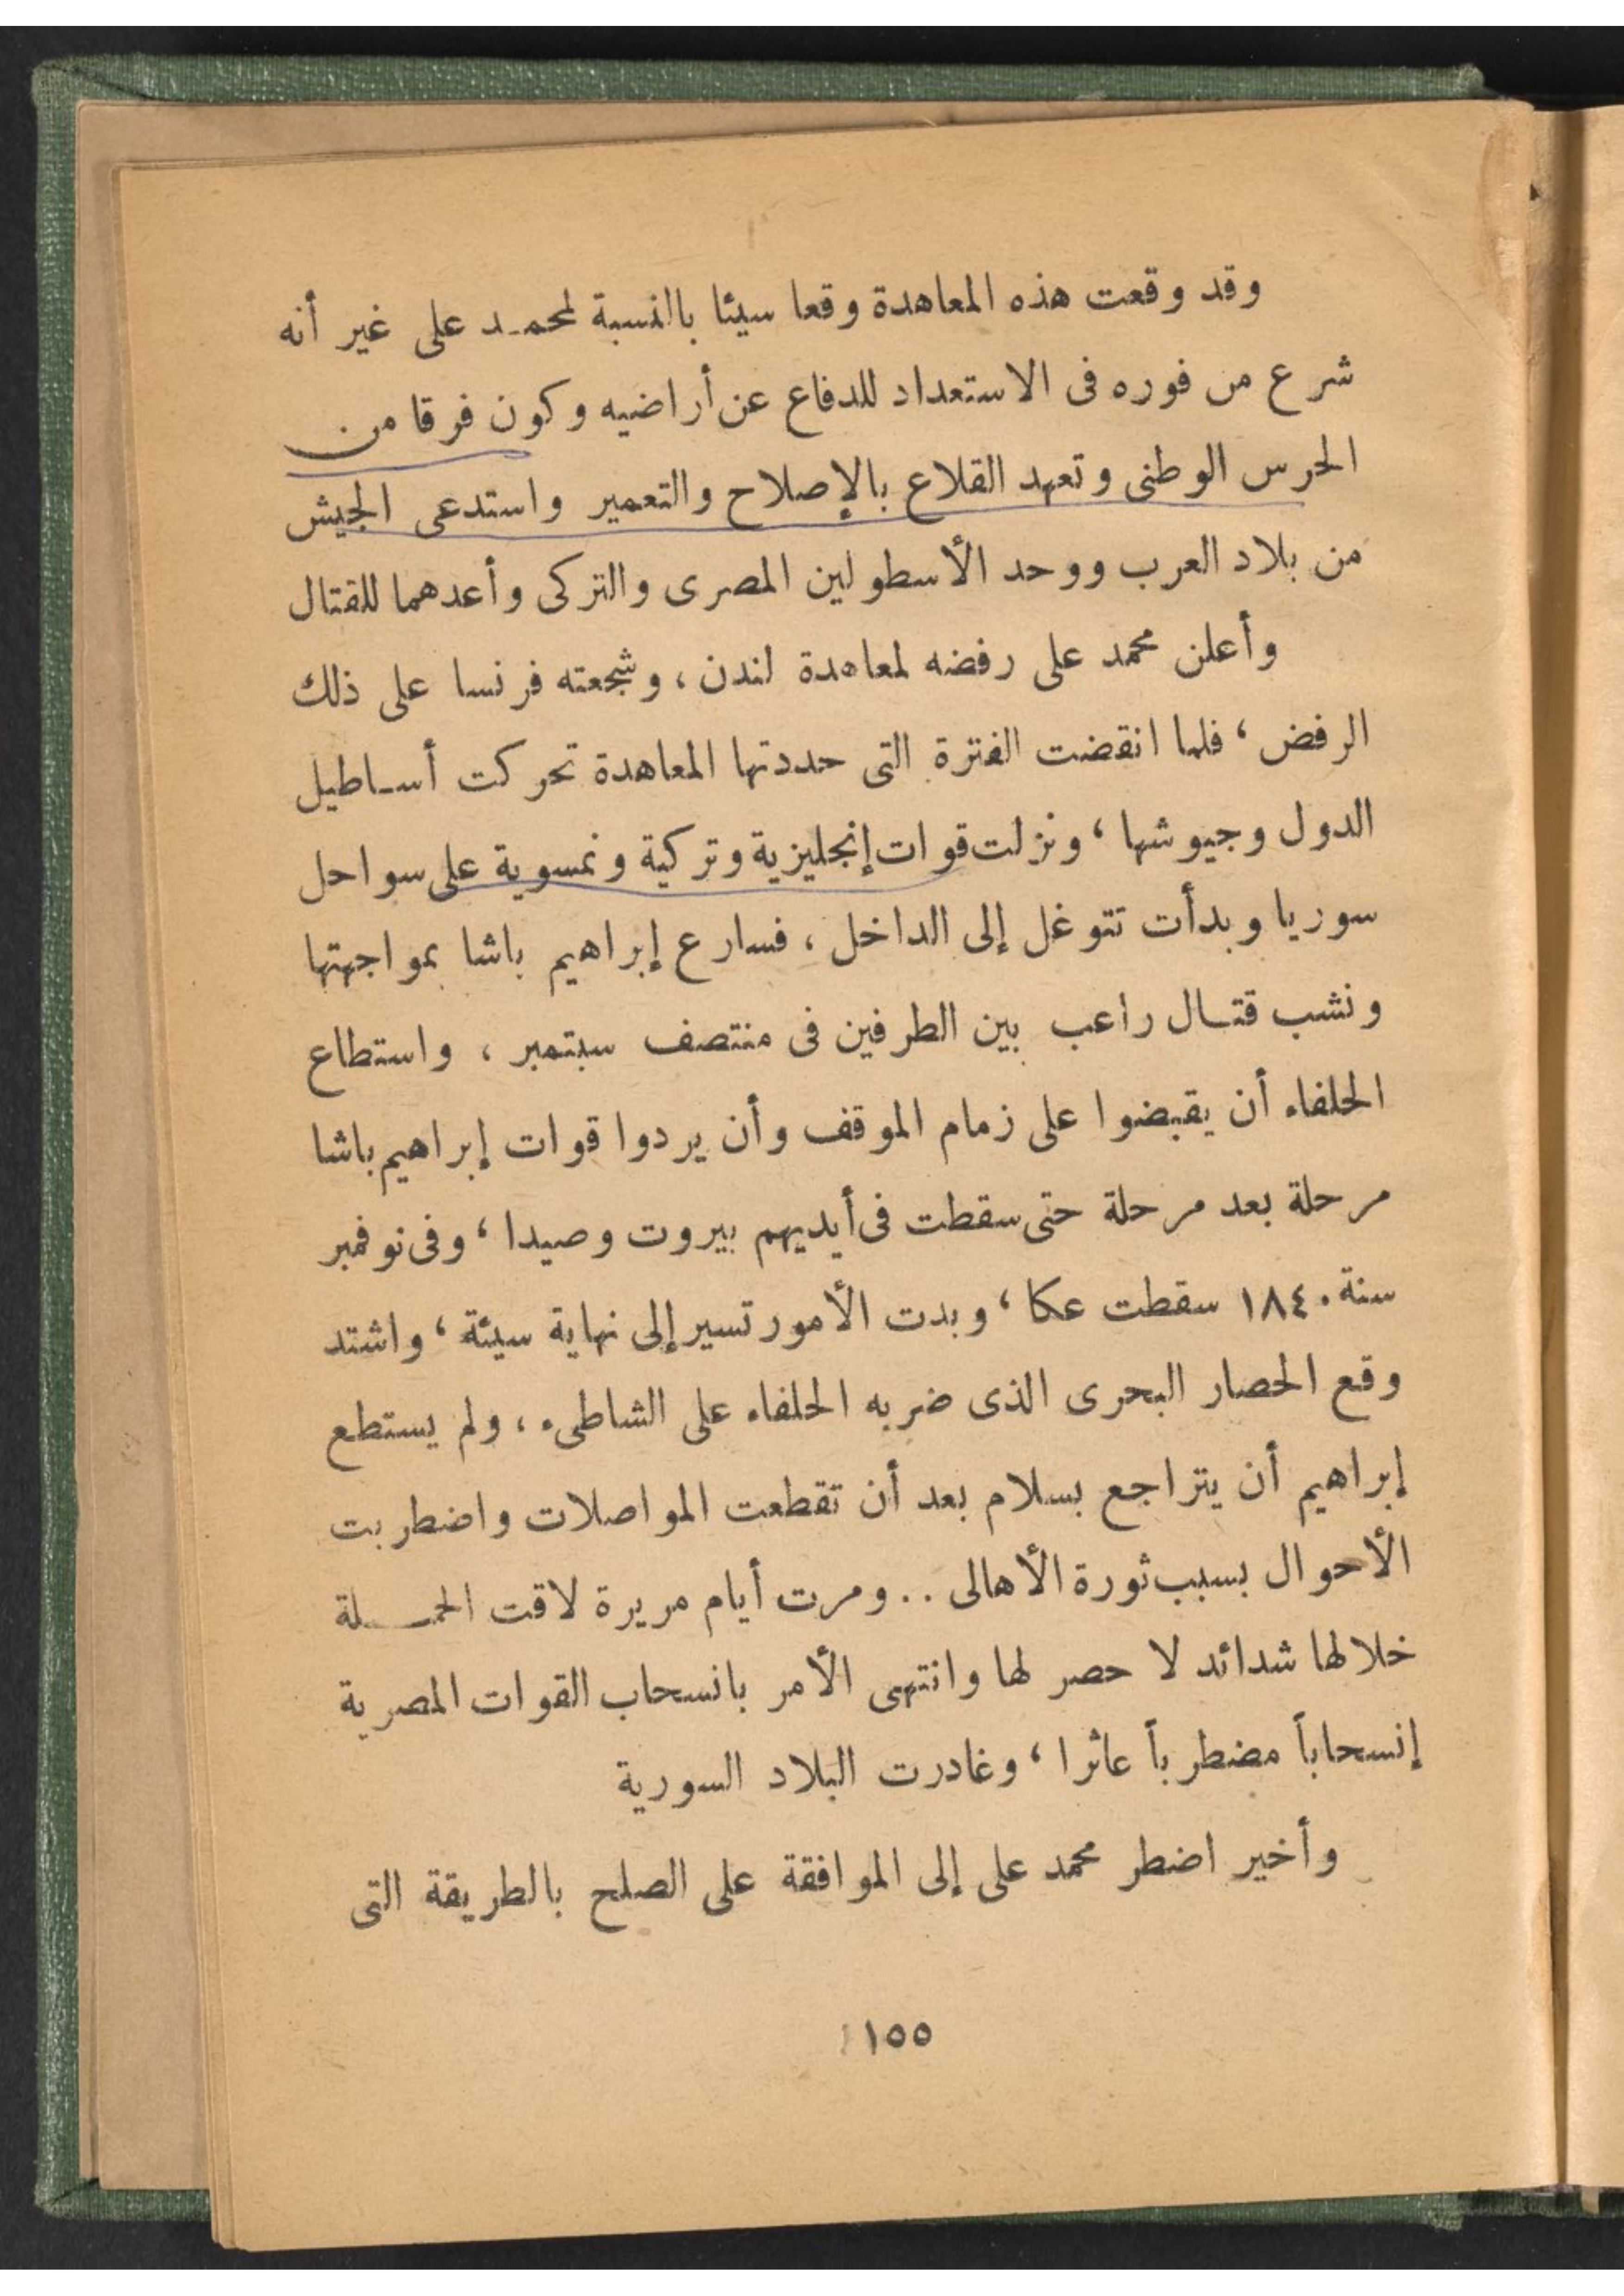 وقد وقعت هذه المعاهدة وقعا سيئا بالنسبة لمحمد على غير أنه
شرع من فوره فى الاستعداد للدفاع عن أراضيه وكون فرقا من
الحرس الوطنى وتعهد القلاع بالإصلاح والتعمير واستدعى الجيش
من بلاد العرب ووحد الأسطولين المصرى والتركى وأعدهما للقتال
وأعلن محمد على رفضه لمعاهدة لندن، وشجعته فرنسا على ذلك
الرفض، فلما انقضت الفترة التى حددتها المعاهدة تحركت أساطيل
الدول وجيوشها، ونزلت قوات إنجليزية وتركية ونمسوية على سواحل
سوريا وبدأت تتوغل إلى الداخل، فسارع إبراهيم باشا بمواجهتها
ونشب قتال راعب بين الطرفين فى منتصف سبتمبر، واستطاع
الحلفاء أن يقبضوا على زمام الموقف وأن يردوا قوات إبراهيم باشا
مرحلة بعد مرحلة حتى سقطت فى أيديهم بيروت وصيدا، وفى نوفمبر
سنة ١٨٤٠ سقطت عكا، وبدت الأمور تسير إلى نهاية سيئة، واشتد
وقع الحصار البحرى الذى ضربه الحلفاء على الشاطىء، ولم يستطع
إبراهيم أن يتراجع بسلام بعد أن تقطعت المواصلات واضطربت
الأحوال بسبب ثورة الأهالى .. ومرت أيام مريرة لاقت الحملة
خلالها شدائد لا حصر لها وانتهى الأمر بانسحاب القوات المصرية
إنسحاباً مضطرباً عاثرا، وغادرت البلاد السورية
وأخير اضطر محمد على إلى الموافقة على الصلح بالطريقة التى
١٥٥